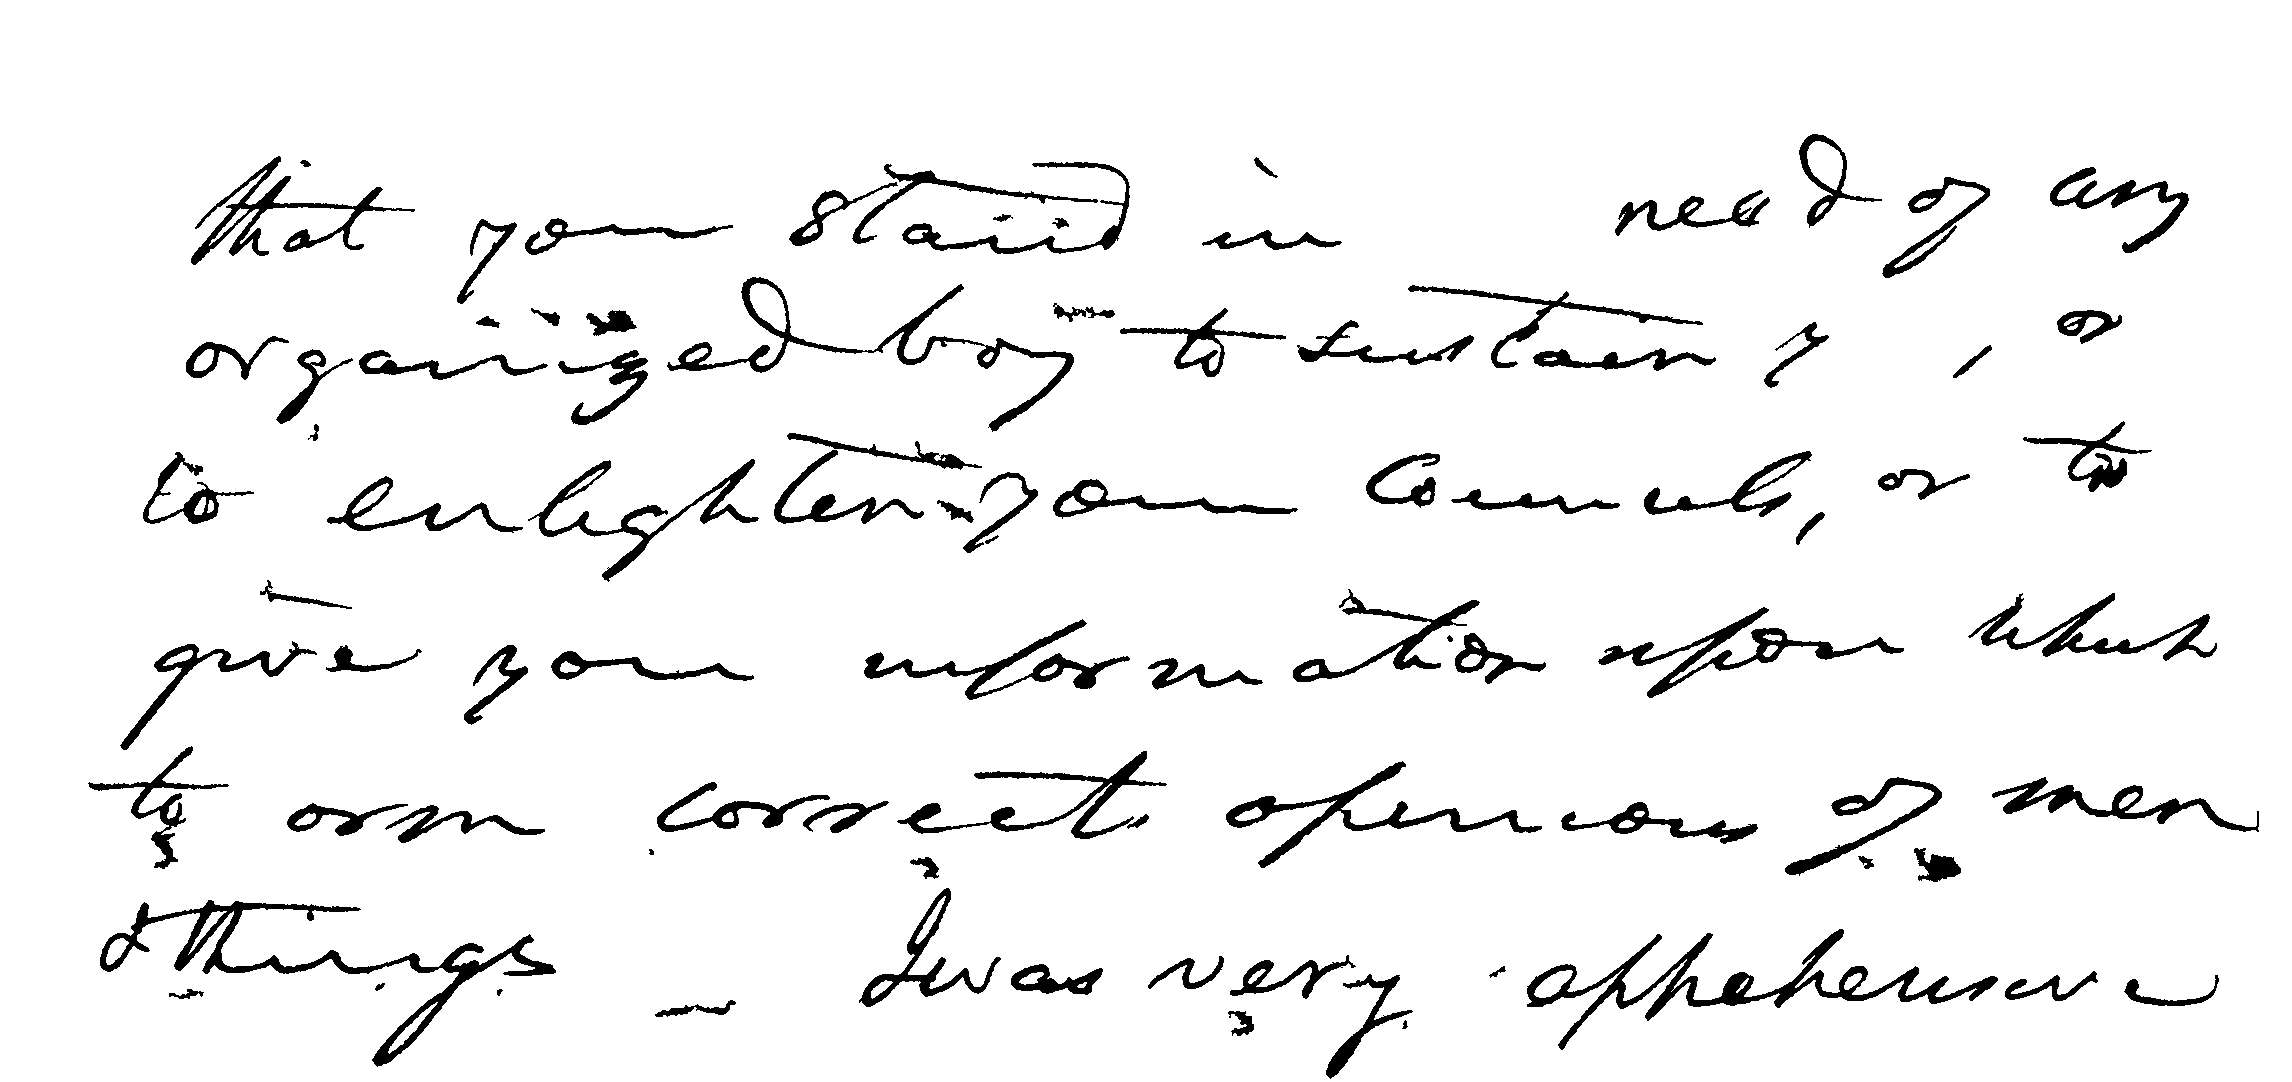 that you stand in need of any
organized boy to sustain y , or
to enlighten your Councils, or to
give you information upon which
to orm correct opinions of men
& things _ I was very appehensive